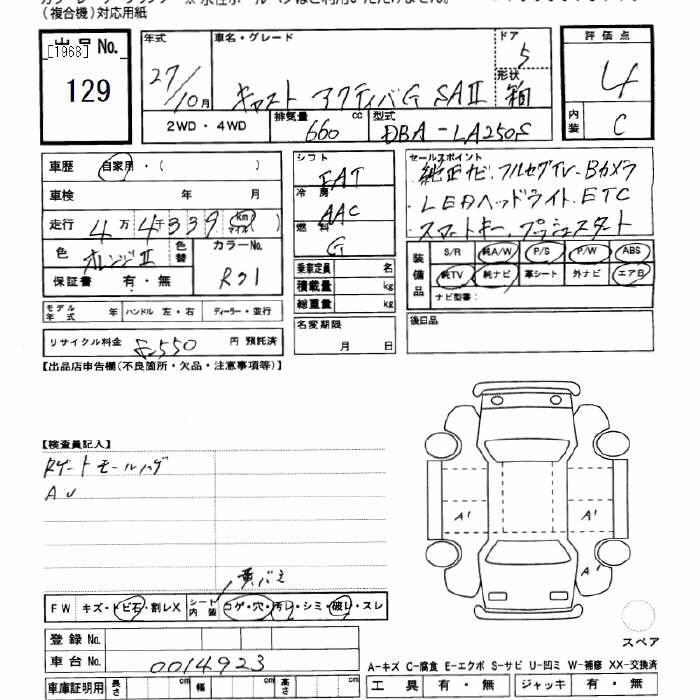 （複合機）対応用紙
出品No.
[1968]
129
年式
27/10月
車名・グレード
キャスト アクティバG SAⅡ
ドア
5
形状
箱
2WD・4WD
排気量
660 cc
型式
DBA-LA250S
評価点
4
内装
C
車歴 自家用・（ ）
車検 年 月
走行 4万4千339 km マイル
色 オレンジⅡ 色替
カラーNo. R71
保証書 有・無
モデル年式 年 ハンドル 左・右 ディーラー・並行
リサイクル料金 8550 円 預託済
シフト
FAT
冷房
AAC
燃料
G
乗車定員 名
積載量 kg
総重量 kg
名変期限
月 日
セールスポイント
純正ナビ.フルセグTV.Bカメラ
LEDヘッドライト.ETC
スマートキー.プッシュスタート
装備品
S/R 純A/W P/S P/W ABS
純TV 純ナビ 革シート 外ナビ エアB
ナビ型番：
後日品
【出品店申告欄(不良箇所・欠品・注意事項等)】
【検査員記入】
Rゲートモールハゲ
AU
FW キズ・トビ石・割レX
シート内装 コゲ・穴・汚レ・シミ・破レ・スレ
登録No.
車台No. 0014923
車庫証明用 長さ cm 幅 cm 高さ cm
A¹
A¹
A¹
スペア
A-キズ C-腐食 E-エクボ S-サビ U-凹ミ W-補修 XX-交換済
工具 有・無 ジャッキ 有・無